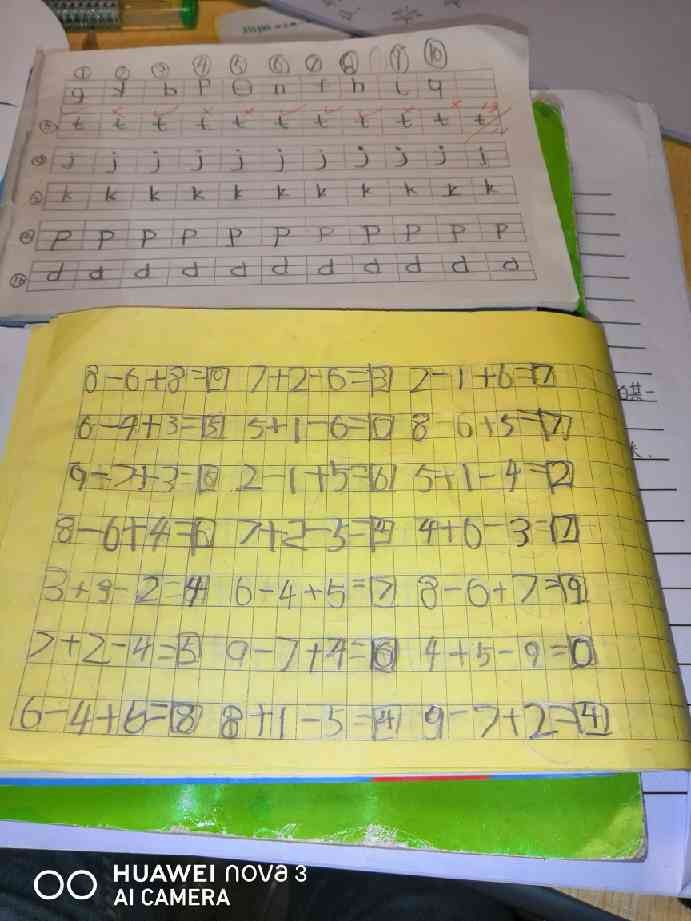 ① ② ③ ④ ⑤ ⑥ ⑦ ⑧ ⑨ ⑩
t t t t t t t t t t t
j j j j j j j j j j j
k k k k k k k k k k k
p p p p p p p p p p p
d d d d d d d d d d d
7+2-6=3 2-1+6=7
5+1-6=0 8-6+5=7
2-1+5=6 5+1-4=2
8-6+4=6 7+2-5=4 4+6-3=7
3+3-2=4 6-4+5=7 8-6+7=9
7+2-4=5 9-7+4=6 4+5-9=0
6-4+6=8 8+1-5=4 9-7+2=4
HUAWEI nova 3
AI CAMERA